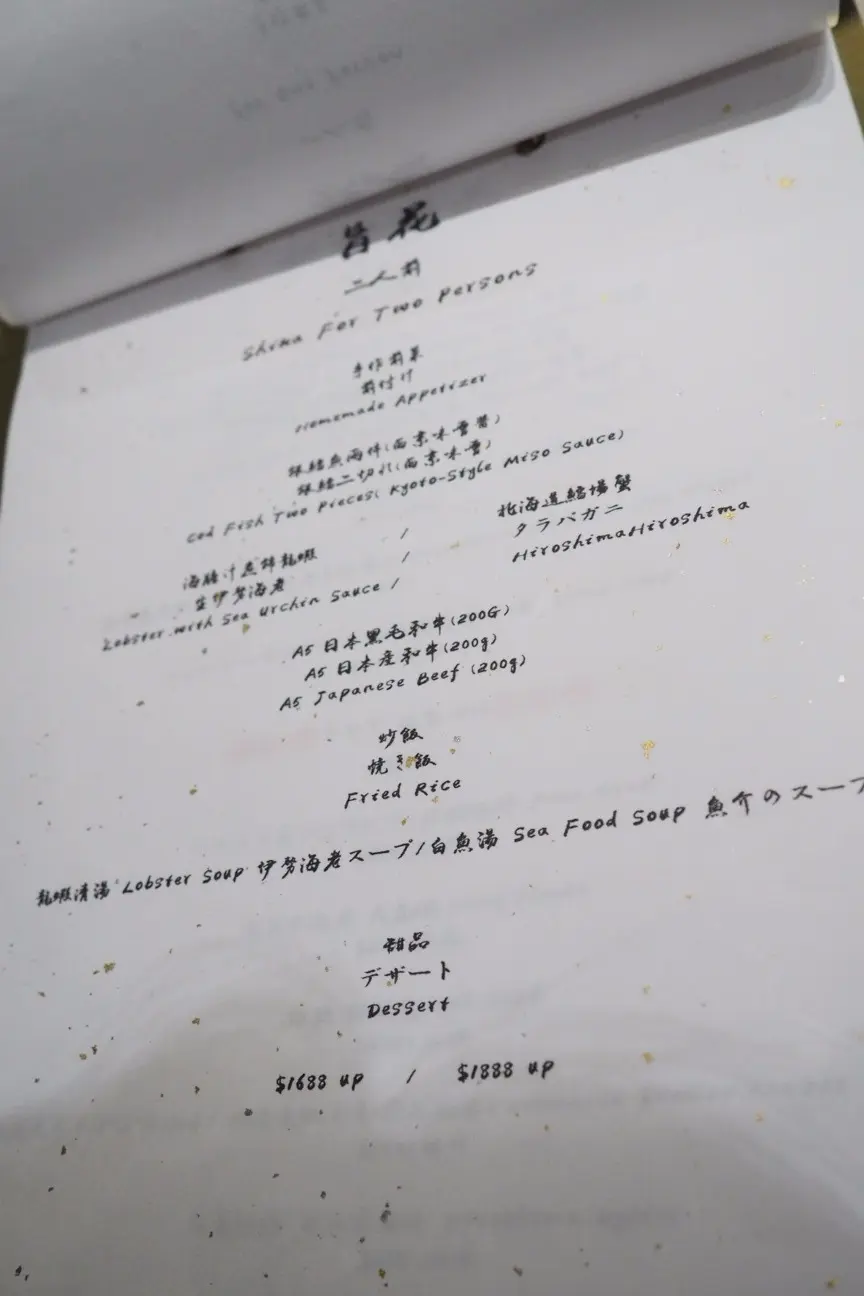 旨花
二人前
Shika For Two persons
手作前菜
前付け
Homemade Appetizer
銀鱈魚兩件(西京味噌醬)
銀鱈二切れ(西京味噌)
Cod Fish Two Pieces( Kyoto-Style Miso Sauce)
海膽汁煮鮮龍蝦 / 北海道鱈場蟹
生伊勢海老 / タラバガニ
Lobster with Sea Urchin Sauce / HiroshimaHiroshima
A5 日本黑毛和牛(200G)
A5 日本産和牛(200g)
A5 Japanese Beef (200g)
炒飯
焼き飯
Fried Rice
龍蝦清湯 Lobster Soup 伊勢海老スープ/白魚湯 Sea Food Soup 魚介のスープ
甜品
デザート
Dessert
$1688 up / $1888 up